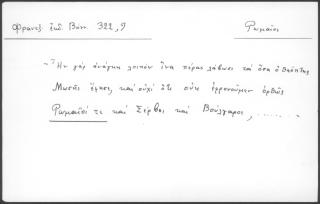 Φραντζ. ἐκδ. Βονν. 322,9
Ρωμαῖος
"Ἦν γὰρ ἀνάγκη λοιπὸν ἵνα πέρας λάβωσι καὶ ὅσα ὁ θεόπτης
Μωσῆς ἔφησε, καὶ οὐχὶ ὅτι οὐκ ἐφρονοῦμεν ὀρθῶς
Ρωμαῖοί τε καὶ Σέρβοι καὶ Βούλγαροι, .......